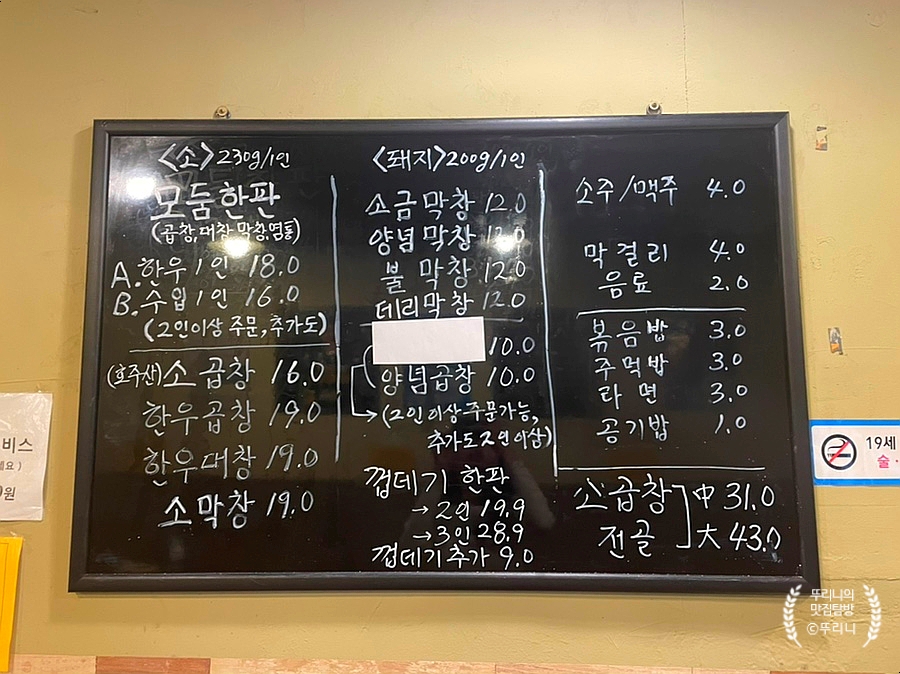 <소> 230g/1인
모둠한판
(곱창,대창,막창,염통)
A.한우1인 18.0
B.수입1인 16.0
(2인이상 주문,추가도)
(호주산)소곱창 16.0
한우곱창 19.0
한우대창 19.0
소막창 19.0
<돼지>200g/1인
소금막창 12.0
양념막창 12.0
불막창 12.0
데리막창 12.0
10.0
양념곱창 10.0
→(2인이상주문가능,
추가도2인이상)
껍데기 한판
→2인 19.9
→3인 28.9
껍데기추가 9.0
소주/맥주 4.0
막걸리 4.0
음료 2.0
볶음밥 3.0
주먹밥 3.0
라면 3.0
공기밥 1.0
소곱창 中 31.0
전골 大 43.0
비스
세요)
원
19세
술·
뚜리니의
맛집탐방
©뚜리니